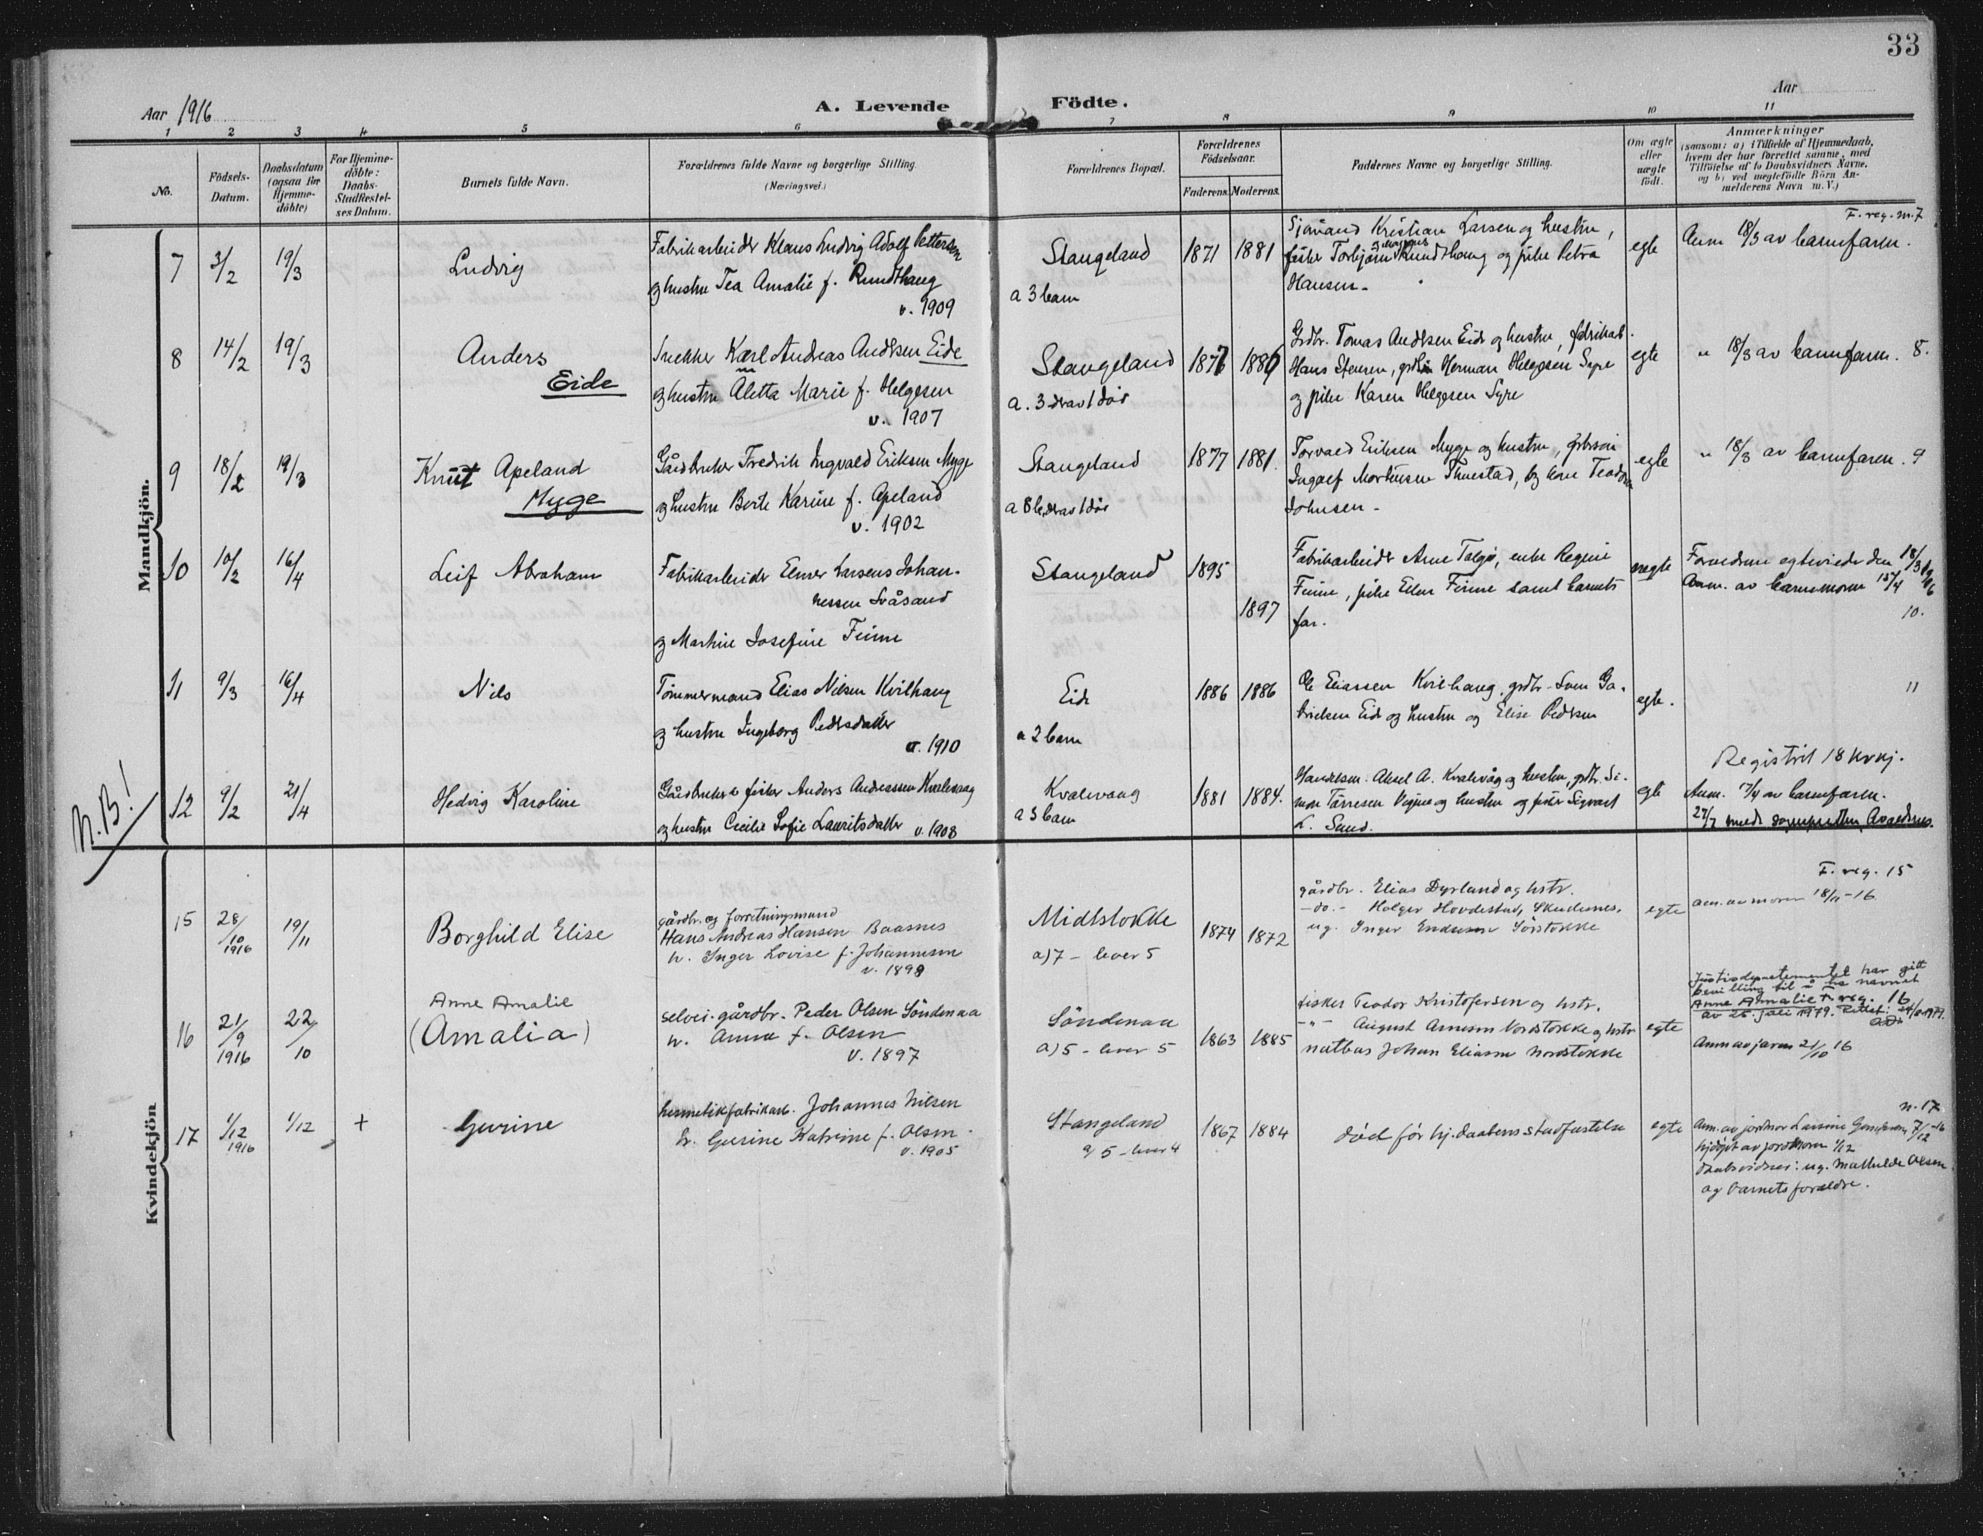 33
Aar 1916
A. Levende Födte.
Aar
1 2 3 4 5 6 7 8 9 10 11
No.
Födsels-
Datum.
Daabsdatum
(ogsaa for
Hjemme-
döbte)
For Hjemme-
döbte:
Daabs-
Stadfestel-
ses Datum.
Barnets fulde Navn.
Forældrenes fulde Navne og borgerlige Stilling.
(Næringsvei.)
Forældrenes Bopæl.
Forældrenes
Födselsaar.
Faderens. Moderens.
Faddernes Navne og borgerlige Stilling.
Om ægte
eller
uægte
født.
Anmærkninger
(saasom: a) i Tilfælde af Hjemmedaab,
hvem der har forrettet samme, med
Tilföielse af to Daabsvidners Navne,
og b) ved uægtefödte Börn An-
melderens Navn m. V.)
Mandkjön.
7 3/2 19/3 Ludvig
Fabrikarbeider Klaus Ludvig Adolf Pettersen
og hustru Tea Amalie f. Rundthaug
v. 1909
Stangeland
a 3 barn
1871 1881
Sjömand Kristian Larsen og hustru,
fisker Torbjörn Rundthaug og pike Petra
Hansen.
egte
F. reg. nr. 7
Anm 18/3 av barnefaren.
8 14/2 19/3 Anders
Eide
Snekker Karl Andreas Andersen Eide
og hustru Aletta Marie f. Helgesen
v. 1907
Stangeland
a. 3 derav 1 död
1877 1886
Grdbr. Tomas Andersen Eide og hustru, fabrikarb.
Hans Stensen, Herman Helgesen Syre
og pike Karen Helgesen Syre
egte
" 18/3 av barnefaren. 8.
9 18/2 19/3 Knut Apeland
Myge
Gårdbruker Fredrik Ingvald Eriksen Myge
og hustru Berte Karine f. Apeland
v. 1902
Stangeland
a 8 b, derav 1 död
1877 1881.
Torvald Eriksen Myge og hustru,
Ingolf Mortensen Thuestad, og kone Teodora
Johnsen.
egte
" 18/3 av barnefaren. 9
10 10/2 16/4 Leif Abraham
Fabrikarbeider Elmer Larsens Johan-
nessen Svåsand
og Martine Josefine Feine
Stangeland
1895
1897
Fabrikarbeider Arne Talgö, enke Regine
Finne, pike Ellen Finne samt barnets
far.
uegte
Foreldrene egteviede den 18/3 1916
Anm. av barnemoren 15/4
10.
11 9/3 16/4 Nils
Tömmermand Elias Nilsen Kvilhaug
og hustru Ingeborg Pedersdatter
v. 1910
Eide
a 2 barn
1886 1886
Ole Eliassen Kvilhaug, grdbr. Sven Ga-
brielsen Eide og hustru og Elise Pedersen
egte.
11
N.B!
12 9/2 21/4 Hedvig Karoline
Gårdbruker & fisker Anders Andreassen Kvalevaag
og hustru Cecilie Sofie Lauritsdatter v. 1908
Kvalevaag
a 3 barn
1881 1884.
Handelsm. Aksel A. Kvalevåg og hustru, grdbr. Si-
mon Tórresen Vigne og hustru og fisker Sigvart
L. Sund.
egte
Registrit 18 kvkj.
Anm. 17/4 av barnefaren.
27/7 meldt sogneprestn, Avaldsnes.
Kvindekjön
15 28/10 1916 19/11 Borghild Elise
gårdbr. og forretningsmand
Hans Andreas Hansen Baasnes
h. Inger Lovise f. Johannesen
v. 1898
Midtstokke
a) 7 - lever 5
1874 1872
gårdbr. Elias Dyrland og hstr.
- do. - Holger Hovdestad, Skudesnes,
ug. Inger Endresen Sörstokke
egte
F. reg. 15
anm. av moren 18/11 - 16
16 21/9 1916 22/10
Anne Amalie
(Amalia)
selvei. gårdbr. Peder Olsen Söndenaa
h. Anna f. Olsen
v. 1897
Söndenaa
a) 5 - lever 5
1863 1885
fisker Teodor Kristofersen og hstr.
- " - August Arnesen Nordstokke og hstr
Johan Eliassen Nordstokke
egte
Justisdepartementet har gitt
bevilling til å ha navnet
Anne Amalie F. reg. 16
av 25. juli 1979.
Anm av faren 21/10 16
17 1/12 1916 1/12 + Gurine
hermetikfabrikarb. Johannes Nilsen
h. Gurine Katrine f. Olsen
v. 1905
Stangeland
a) 5 - lever 4
1867 1884
död før hj. daabens stadfestelse
egte
n. 17
Anm. av jordmor Larsine Gundersen 7/12-16
hjdöpt av jordmoren 1/12
daabsvidner: ug. Mathilde Olsen
og barnets foreldre.